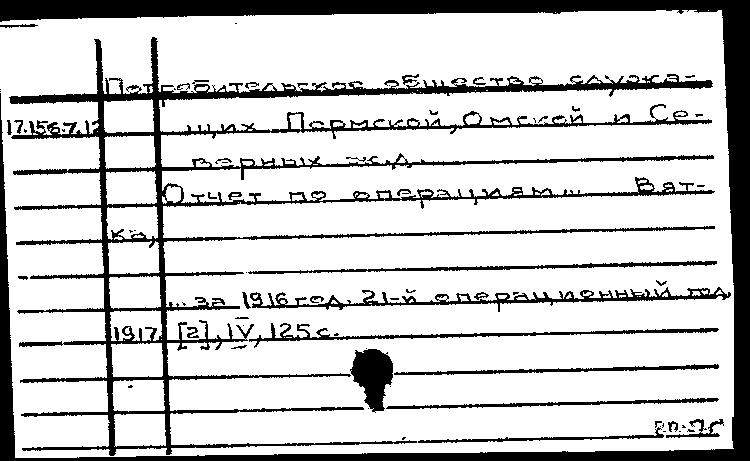 Потребительское общество служа-
17.156.7.12 щих Пермской, Омской и Се-
верных ж.д.
Отчет по операциям... Вят-
ка,
... за 1916 год. 21-й операционный год,
1917. [2], IV, 125 с.